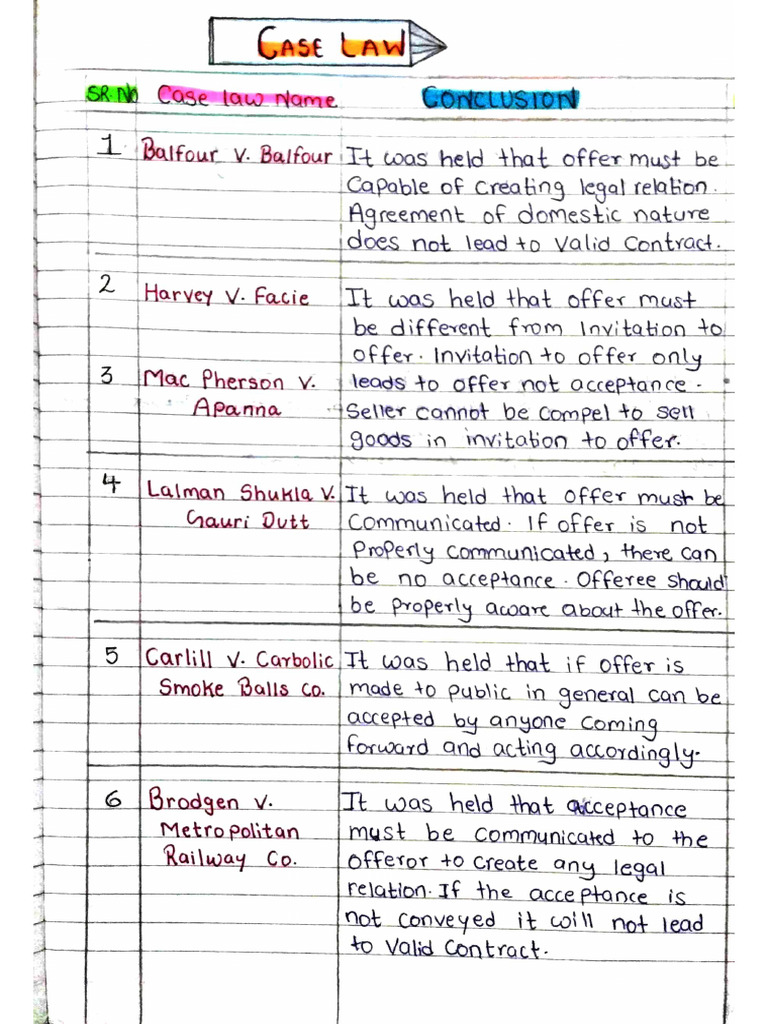 CASE LAW
SR.NO Case law Name CONCLUSION
1 Balfour v. Balfour It was held that offer must be
Capable of creating legal relation.
Agreement of domestic nature
does not lead to Valid Contract.
2 Harvey v. Facie It was held that offer must
be different from Invitation to
offer. Invitation to offer only
3 Mac Pherson v. leads to offer not acceptance.
Apanna Seller cannot be compel to sell
goods in invitation to offer.
4 Lalman Shukla v. It was held that offer must be
Gauri Dutt Communicated. If offer is not
Properly communicated, there can
be no acceptance. Offeree should
be properly aware about the offer.
5 Carlill v. Carbolic It was held that if offer is
Smoke Balls Co. made to public in general can be
accepted by anyone coming
forward and acting accordingly.
6 Brodgen v. It was held that acceptance
Metropolitan must be communicated to the
Railway Co. offeror to create any legal
relation. If the acceptance is
not conveyed it will not lead
to Valid Contract.